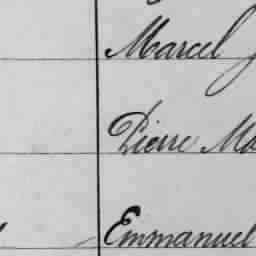 Marcel
Pierre Ma
Emmanuel